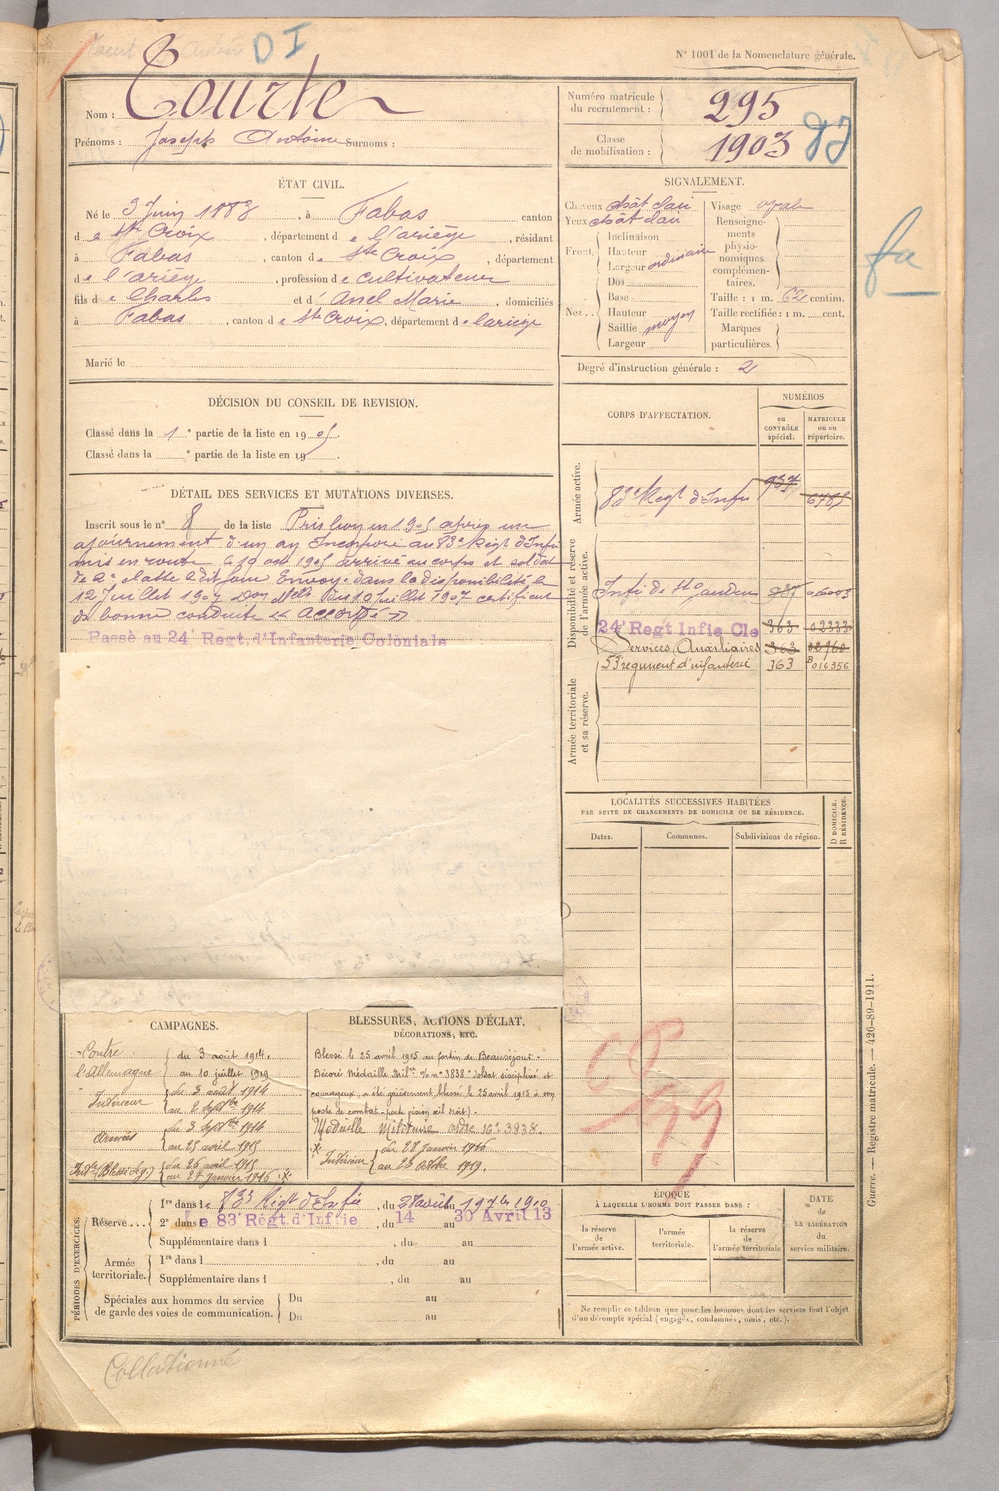 D I
N° 1001 de la Nomenclature générale.
Nom : Courte
Prénoms : Joseph Antoine Surnoms :
Numéro matricule du recrutement : 295
Classe de mobilisation : 1903
ÉTAT CIVIL.
Né le 3 Juin 1883, à Fabas canton
d e Ste Croix, département d e l'ariège, résidant
à Fabas, canton d e Ste Croix, département
d e l'ariège, profession d e cultivateur
fils d e Charles et d' Anel Marie, domiciliés
à Fabas, canton d e Ste Croix, département d e l'ariège
Marié le
SIGNALEMENT.
Cheveux chât clair Visage ovale
Yeux chât clair
Front. Inclinaison
Hauteur
Largeur ordinaire
Nez. Dos
Base
Hauteur
Saillie moyen
Largeur
Renseignements physionomiques complémentaires.
Taille : 1 m. 62 centim.
Taille rectifiée : 1 m. cent.
Marques particulières.
Degré d'instruction générale : 2
DÉCISION DU CONSEIL DE REVISION.
Classé dans la 1 e partie de la liste en 1905.
Classé dans la e partie de la liste en 19
DÉTAIL DES SERVICES ET MUTATIONS DIVERSES.
Inscrit sous le n° 8 de la liste Pris bon en 1905 après un
ajournement d'un an Incorporé au 83e Régt d'Infie
mis en route le 10 oct 1905 arrivé au corps et soldat
de 2e classe le dit jour Envoyé dans la disponibilité le
12 Juillet 1907 du 10 Juillet 1907 certificat
de bonne conduite « accordé »
Passé au 24 Regt. d'Infanterie Coloniale
CORPS D'AFFECTATION.
NUMÉROS
au CONTRÔLE spécial.
MATRICULE ou au répertoire.
Armée active.
83e Régt d'Infie 937 6787
Disponibilité et réserve de l'armée active.
Infie de St Gaudens
24e Regt Infie Cle 363 02333
Services Auxiliaires 363
53e régiment d'infanterie 363 B 016356
Armée territoriale et sa réserve.
LOCALITÉS SUCCESSIVES HABITÉES
PAR SUITE DE CHANGEMENTS DE DOMICILE OU DE RÉSIDENCE.
Dates. Communes. Subdivisions de région. D DOMICILE. R RÉSIDENCE.
CAMPAGNES.
Contre du 3 août 1914.
l'Allemagne au 10 juillet 1919
Intérieur du 3 août 1914
au 2 Septbre 1914
Armées du 3 Septbre 1914
au 25 avril 1915
du 26 avril 1915
au 27 janvier 1916
BLESSURES, ACTIONS D'ÉCLAT,
DÉCORATIONS, ETC.
Blessé le 25 avril 1915 au fortin de Beauséjour -
Décoré Médaille Milre 3838 "Soldat discipliné et
courageux, a été grièvement blessé le 25 avril 1915 à son
poste de combat - perte vision œil droit).
Médaille Militaire ordre 3838.
Intérieur du 28 janvier 1916
au 25 octbre 1919.
PÉRIODES D'EXERCICES.
Réserve... 1re dans le 83e Régt d'Infie, du 28 août au 17 7bre 1910
2e dans le 83e Régt. d'Inf ie, du 14 au 30 Avril 13
Supplémentaire dans l , du au
Armée territoriale. 1re dans l , du au
Supplémentaire dans l , du au
Spéciales aux hommes du service de garde des voies de communication. Du au
Du au
ÉPOQUE
À LAQUELLE L'HOMME DOIT PASSER DANS :
la réserve de l'armée active. l'armée territoriale. la réserve de l'armée territoriale
DATE de LA LIBÉRATION du service militaire.
Ne remplir ce tableau que pour les hommes dont les services font l'objet
d'un décompte spécial (engagés, condamnés, omis, etc.).
Guerre. — Registre matricule. — 426-89-1911.
Collationné